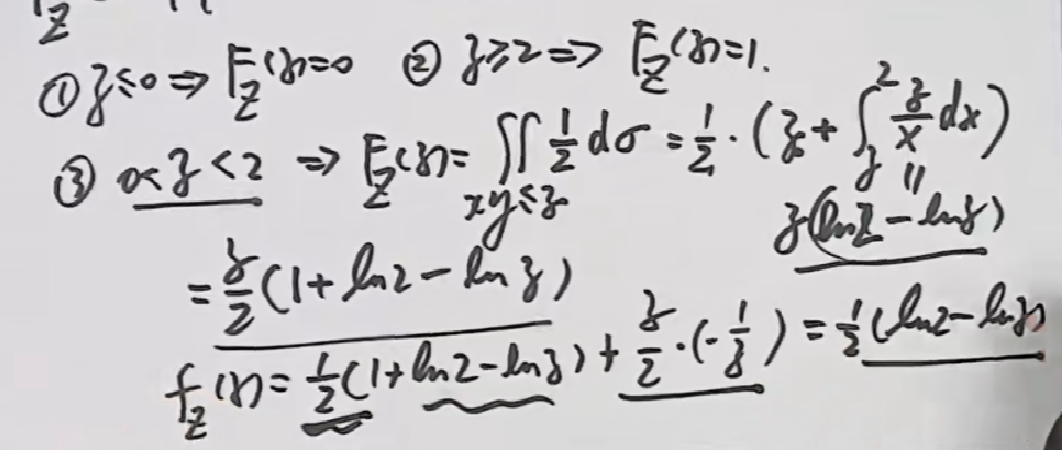 Z
① z≤0 ⇒ F_Z(z)=0 ② z≥2 ⇒ F_Z(z)=1.
③ 0<z<2 ⇒ F_Z(z)= ∬_{xy≤z} 1/2 dσ = 1/2 · (z + ∫_z^2 z/x dx)
|| z(ln2 − lnz)
= z/2 (1+ ln2 − ln z)
f_Z(z) = 1/2 (1+ ln2 − ln z) + z/2 · (− 1/z) = 1/2 (ln2 − lnz)